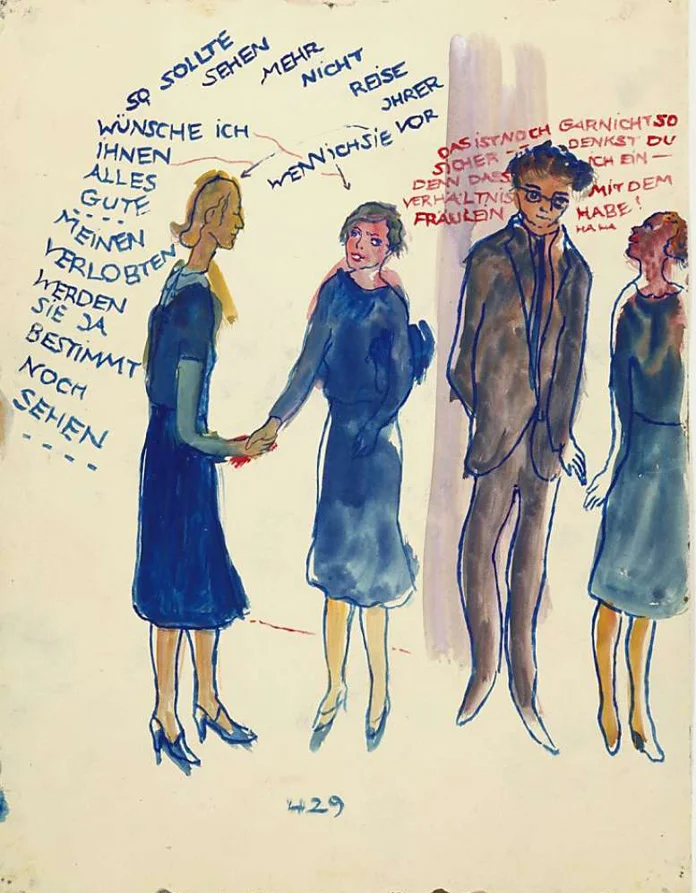 WENN ICH SIE VOR
JHRER
REISE
NICHT
MEHR
SEHEN
SOLLTE
SO
WÜNSCHE ICH
IHNEN
ALLES
GUTE
- - - -
MEINEN
VERLOBTEN
WERDEN
SIE JA
BESTIMMT
NOCH
SEHEN
- - - -
DAS IST NOCH GARNICHT SO
SICHER - - - DENKST DU
DENN DASS ICH EIN —
VERHÄLTNIS MIT DEM
FRÄULEIN HABE!
HA HA
429